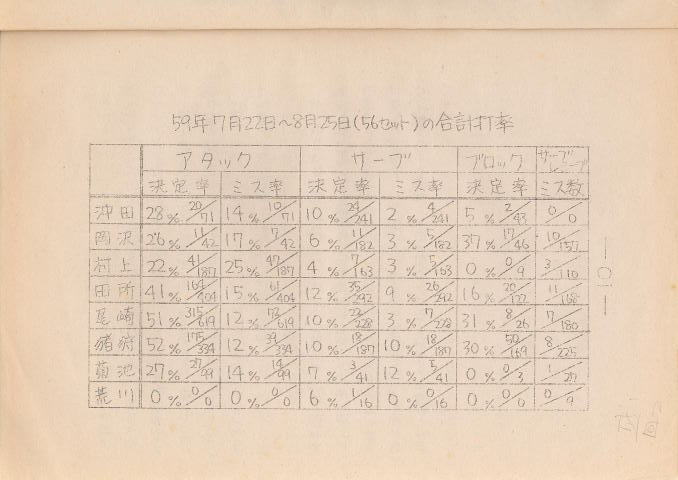 59年7月22日～8月25日(56セット)の合計打率
アタック サーブ ブロック サーブレシーブ
決定率 ミス率 決定率 ミス率 決定率 ミス数
沖田 28% 20/71 14% 10/71 10% 24/241 2% 4/241 5% 2/43 0/0
岡沢 26% 11/42 17% 7/42 6% 11/182 3% 5/182 37% 17/46 10/157
村上 22% 41/187 25% 47/187 4% 7/163 3% 5/163 0% 0/9 3/110
田所 41% 164/404 15% 61/404 12% 35/292 9% 26/292 16% 20/122 11/168
尾崎 51% 315/619 12% 72/619 10% 22/228 3% 7/228 31% 8/26 7/180
猪狩 52% 175/334 12% 39/334 10% 18/187 10% 18/187 30% 50/169 8/225
菊池 27% 27/99 14% 14/99 7% 3/41 12% 5/41 0% 0/3 1/27
荒川 0% 0/0 0% 0/0 6% 1/16 0% 0/16 0% 0/0 0/9
—10—